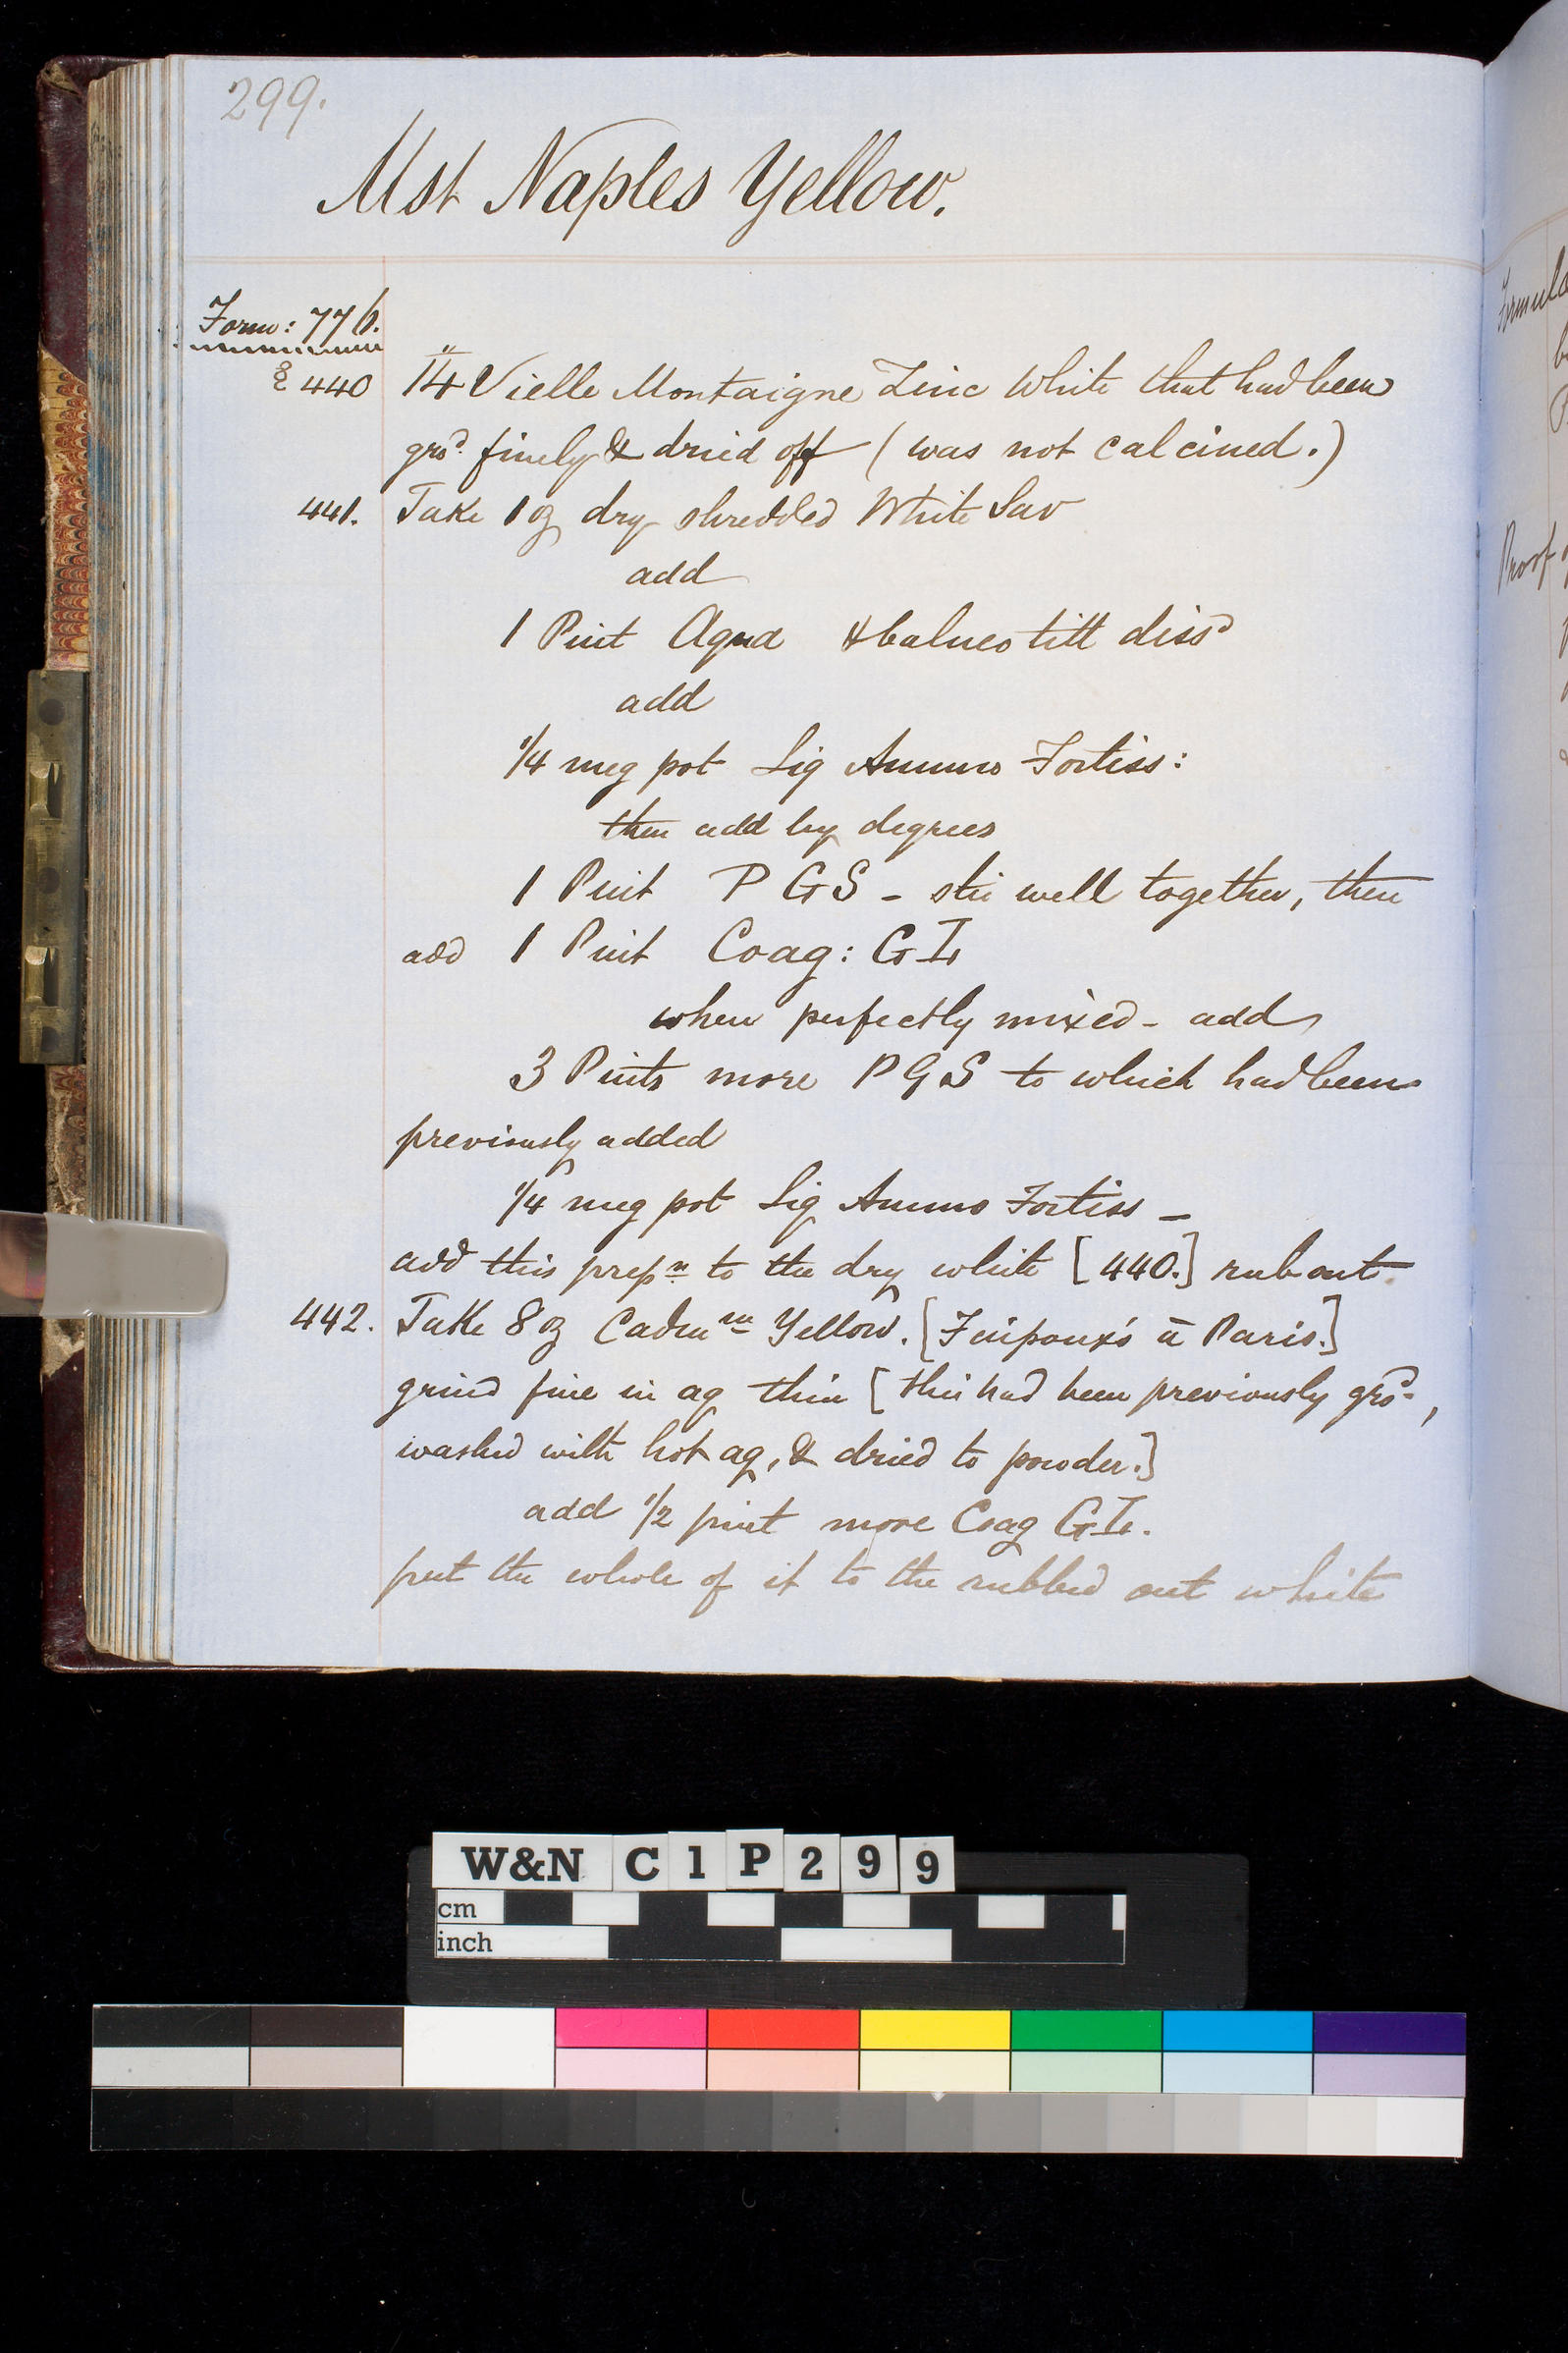 299.
Mst Naples Yellow.
Form: 776.
§ 440 14 Vielle Montaigne Zinc White that had been
grd finely & dried off (was not calcined.)
441. Take 1 oz dry shredded White Sav
add
1 Pint Aqua & balneo till dissd
add
1/4 meg pot Liq Ammo Fortiss:
then add by degrees
1 Pint P G S - stir well together, then
add 1 Pint Coag: G Tr
when perfectly mixed - add
3 Pints more P G S to which had been
previously added
1/4 meg pot Liq Ammo Fortiss -
add this prepn to the dry white [440.] rub out.
442. Take 8 oz Cadmm Yellow. [ à Paris.]
grind fine in aq thin [this had been previously grd,
washed with hot aq, & dried to powder.]
add 1/2 pint more Coag G Tr.
put the whole of it to the rubbed out white
Formula
Proof
W&N C1P299
cm
inch